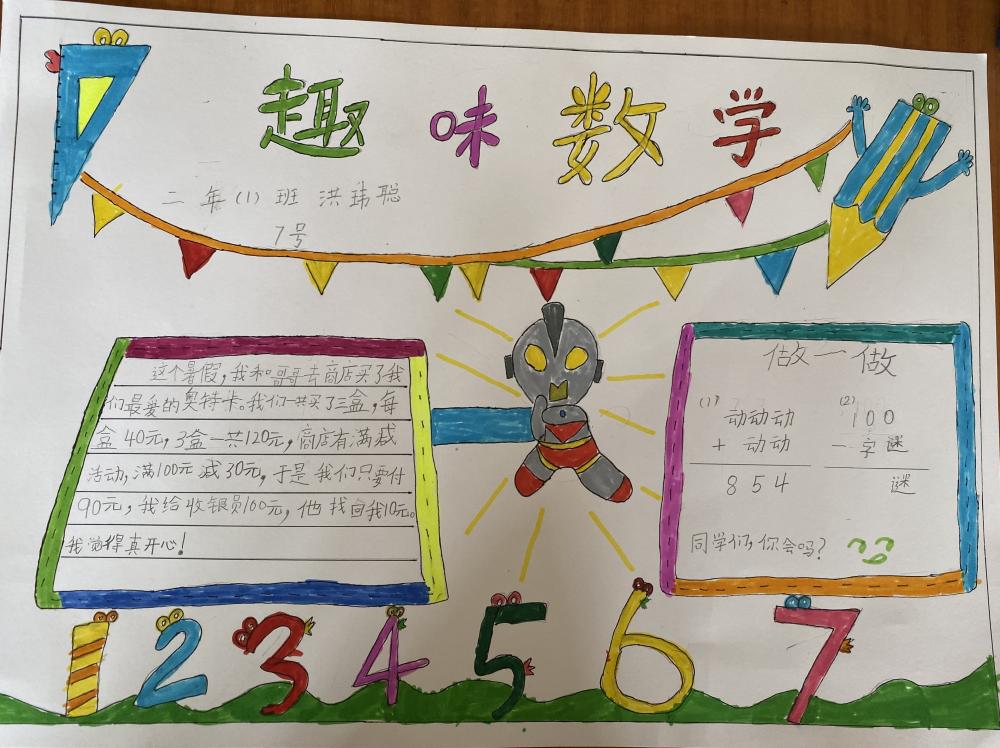 趣味数学
二年(1)班 洪玮聪
7号
这个暑假,我和哥哥去商店买了我
们最爱的奥特卡。我们一共买了三盒,每
盒40元,3盒一共120元,商店有满减
活动,满100元减30元,于是我们只要付
90元,我给收银员100元,他找回我10元。
我觉得真开心!
做一做
(1) 动动动
+ 动动
854
(2) 100
一字谜
谜
同学们,你会吗?
1 2 3 4 5 6 7